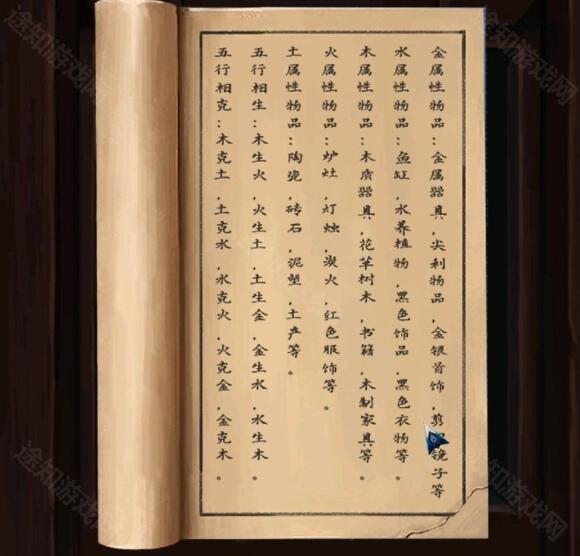 金属性物品:金属器具,尖利物品,金银首饰,剪镜子等
水属性物品:鱼缸,水养植物,黑色饰品,黑色衣物等。
木属性物品:木质器具,花草树木,书籍,木制家具等。
火属性物品:炉灶,灯烛,炭火,红色服饰等。
土属性物品:陶瓷,砖石,泥塑,土产等。
五行相生:木生火,火生土,土生金,金生水,水生木。
五行相克:木克土,土克水,水克火,火克金,金克木。
途知游戏网
途知游戏网
途知游戏网
途知游戏网